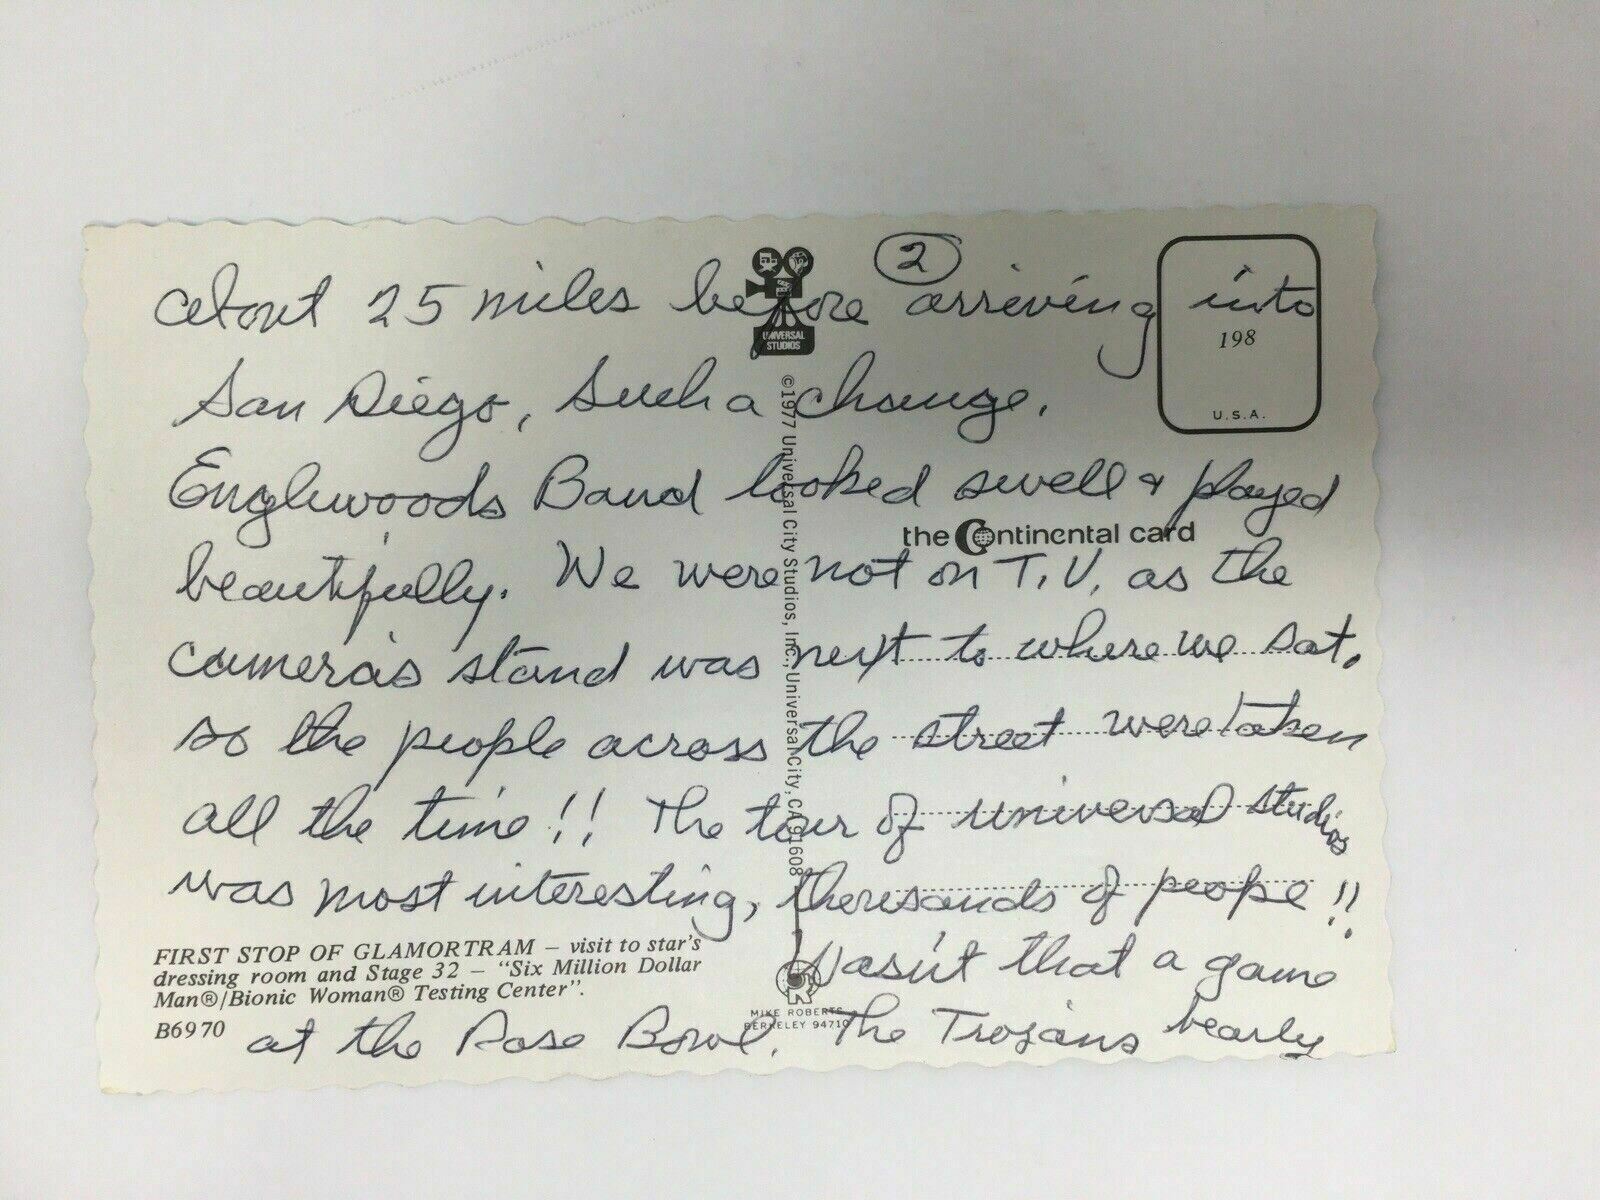 2
about 25 miles before arriving into
San Diego, such a change.
Englwoods Band looked swell & played
beautifully. We were not on T.V. as the
camera's stand was next to where we sat.
so the people across the street were taken
all the time!! The tour of universal studios
was most interesting, thousands of people!!
Wasn't that a game
at the Rose Bowl. The Trojans bearly
UNIVERSAL
STUDIOS
198
U.S.A.
©1977 Universal City Studios, Inc., Universal City, CA 91608
the Continental card
FIRST STOP OF GLAMORTRAM – visit to star's
dressing room and Stage 32 – "Six Million Dollar
Man®/Bionic Woman® Testing Center".
B6970
MIKE ROBERTS
BERKELEY 94710